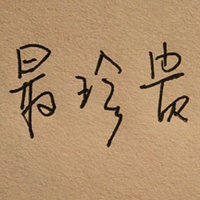 最珍贵